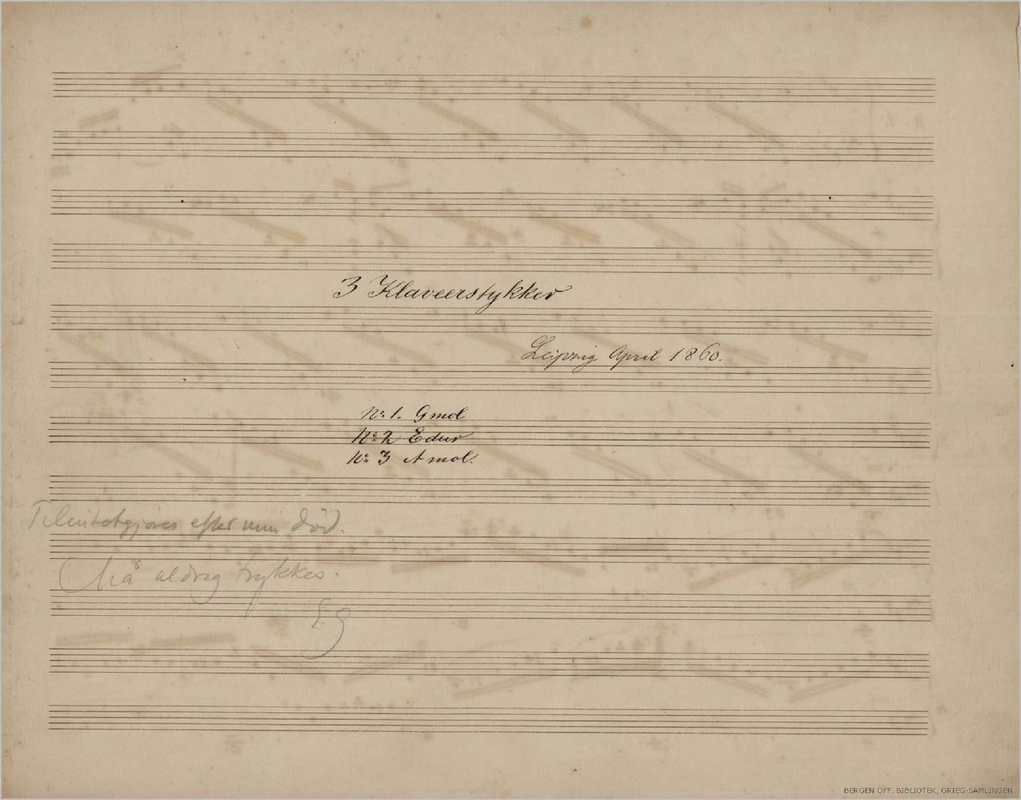 3 Klaveerstykker
Leipzig April 1860.
No 1. G mol
No 2 E dur
No 3 A mol.
Tilintetgjøres efter min død.
Må aldrig trykkes.
EG
BERGEN OFF. BIBLIOTEK, GRIEG-SAMLINGEN